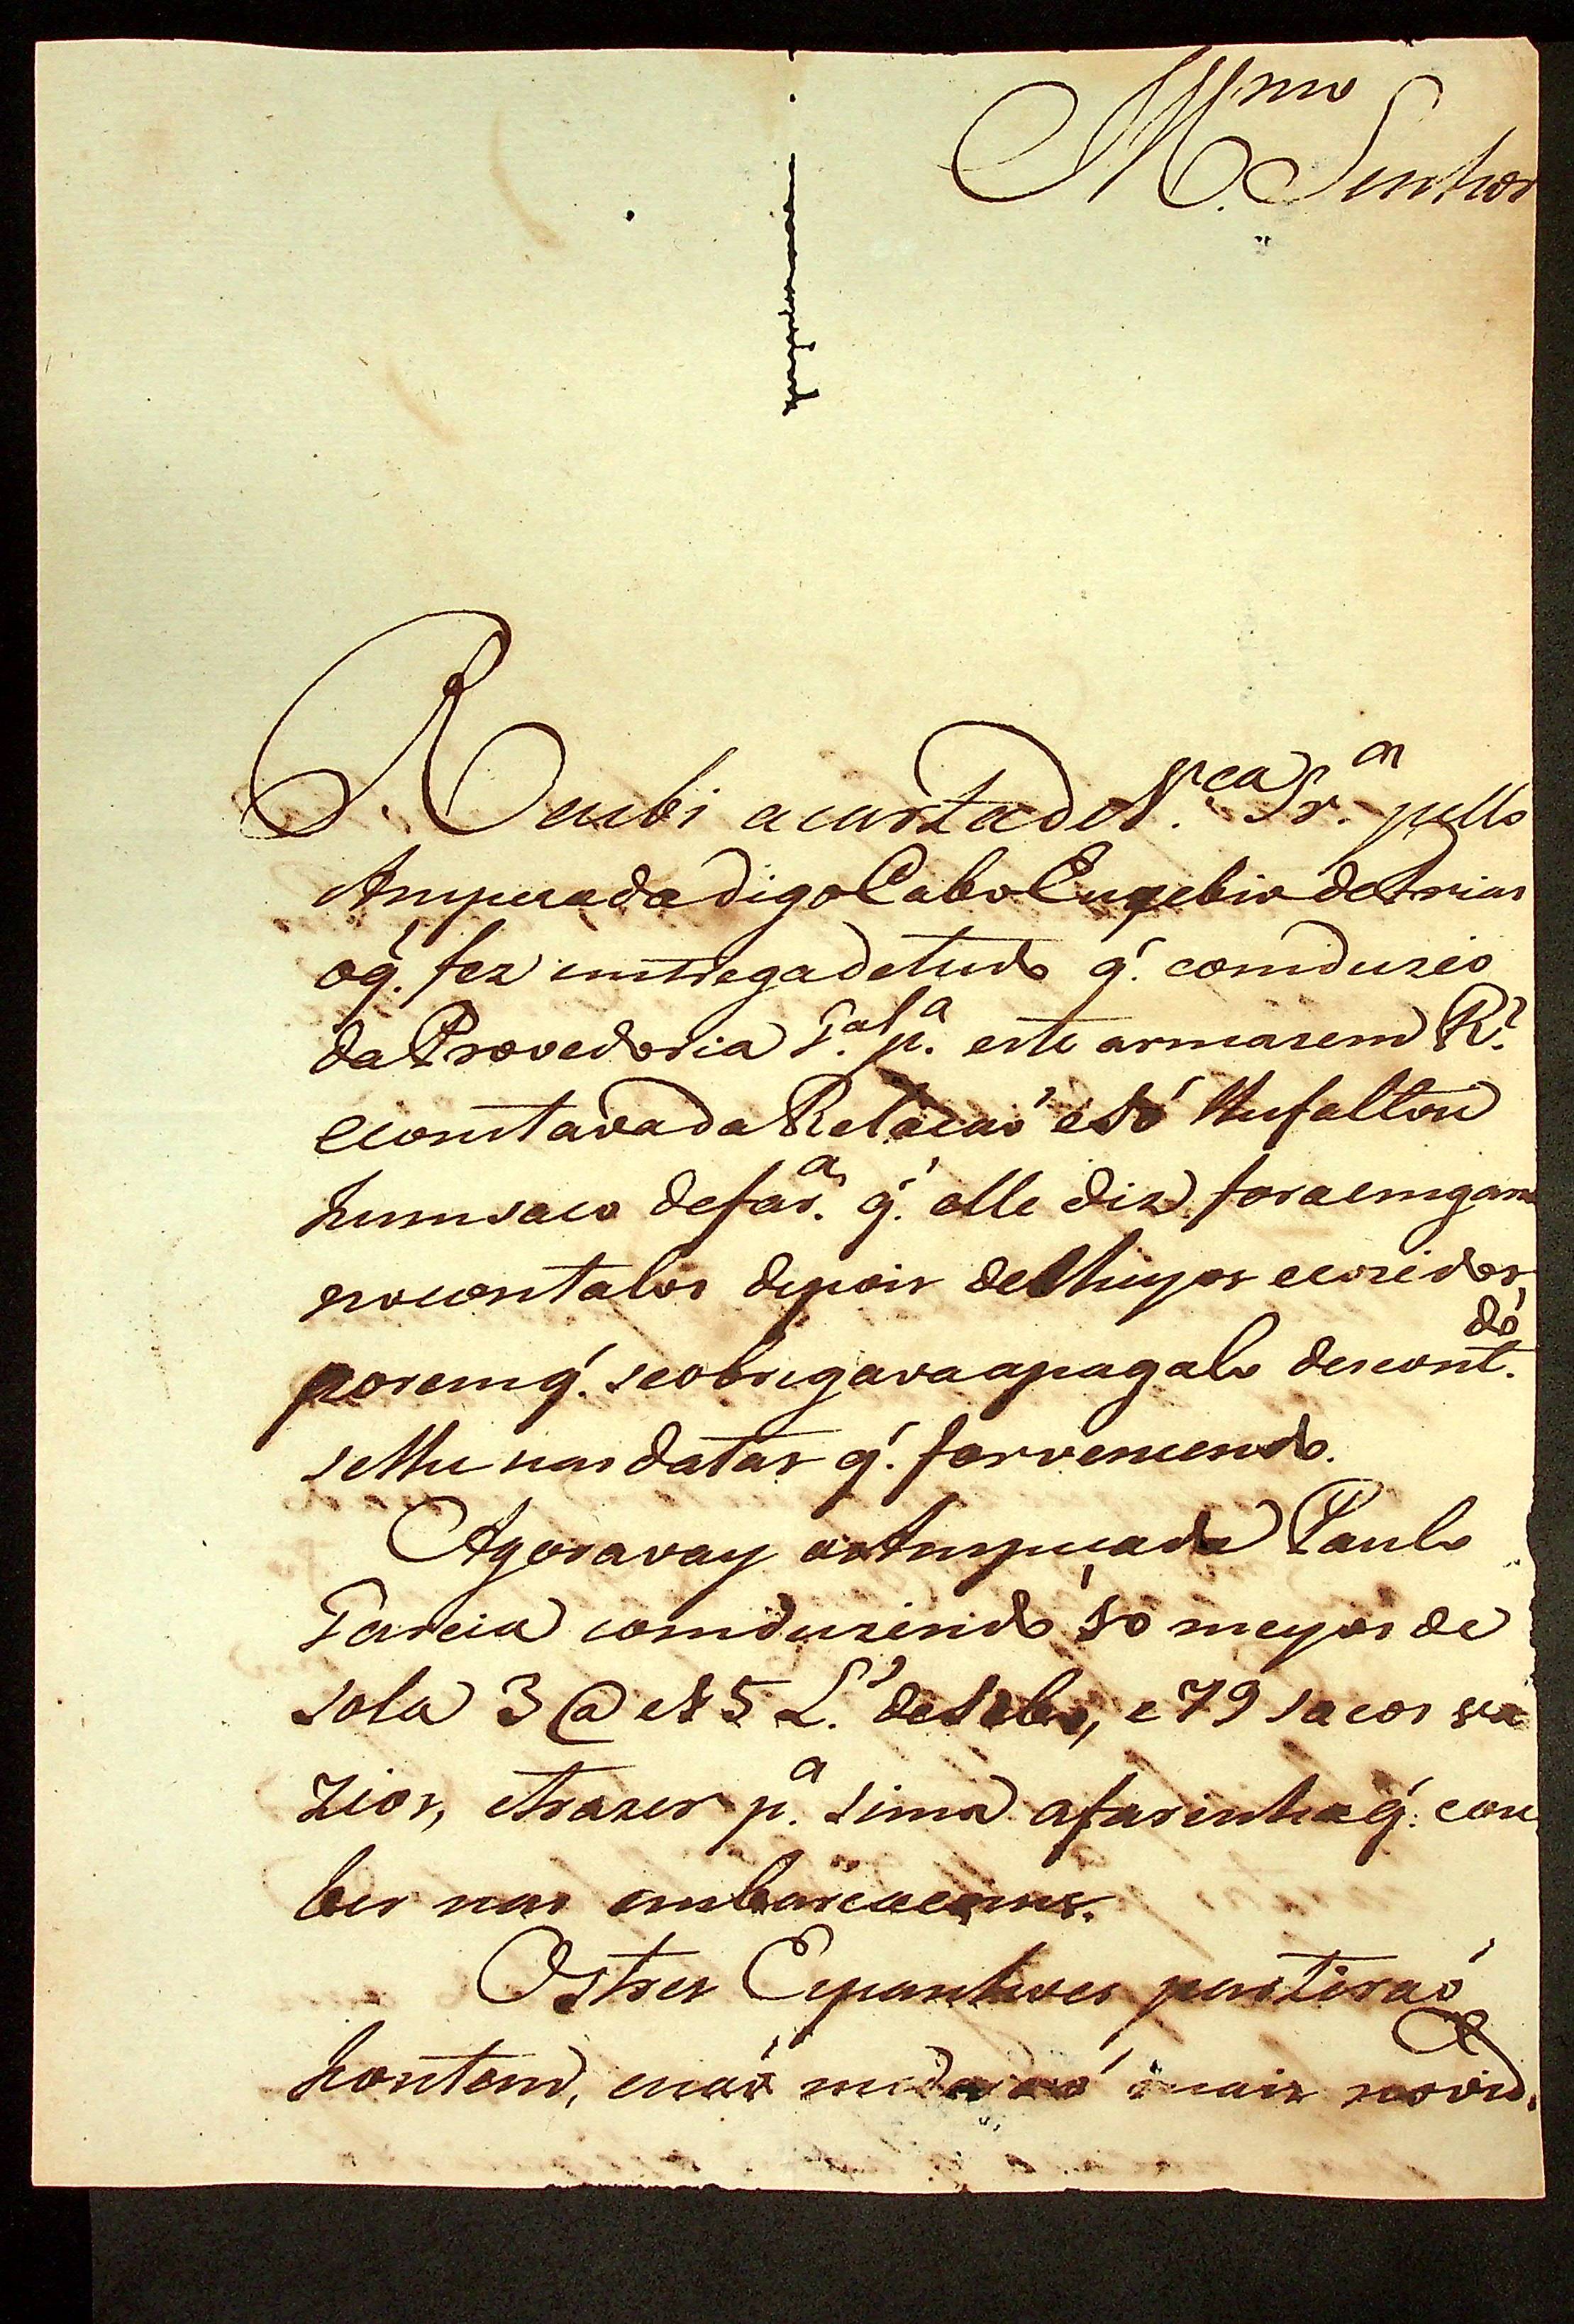 M.mo Senhor
Recebi a carta de V.ca Sr.a pello
Ampesada digo Cabo Euzebio de Frias
o q. fez emtrega de tudo q. comduzio
da Provedoria G.al p.a este armasem R.l
e comstava da Relacaó e só lhe faltou
hum saco de far.a q. elle diz fora emgano
no contalos depois de cheyos e cozidos
porem q. se obrigava a pagalo descont.dó
se lhe nas datas q. for vemcendo.
Agora vay o Ampesada Paulo
Garcia comduzindo 50 meyos de
sola 3 @ e 5 L.s de sebo, e 79 sacos va
zios, e trazer p.a sima a farinha q. cou
ber nas embarcacoens.
Os tres Espanhoes partiraó
hontem, e naó mais novid.e